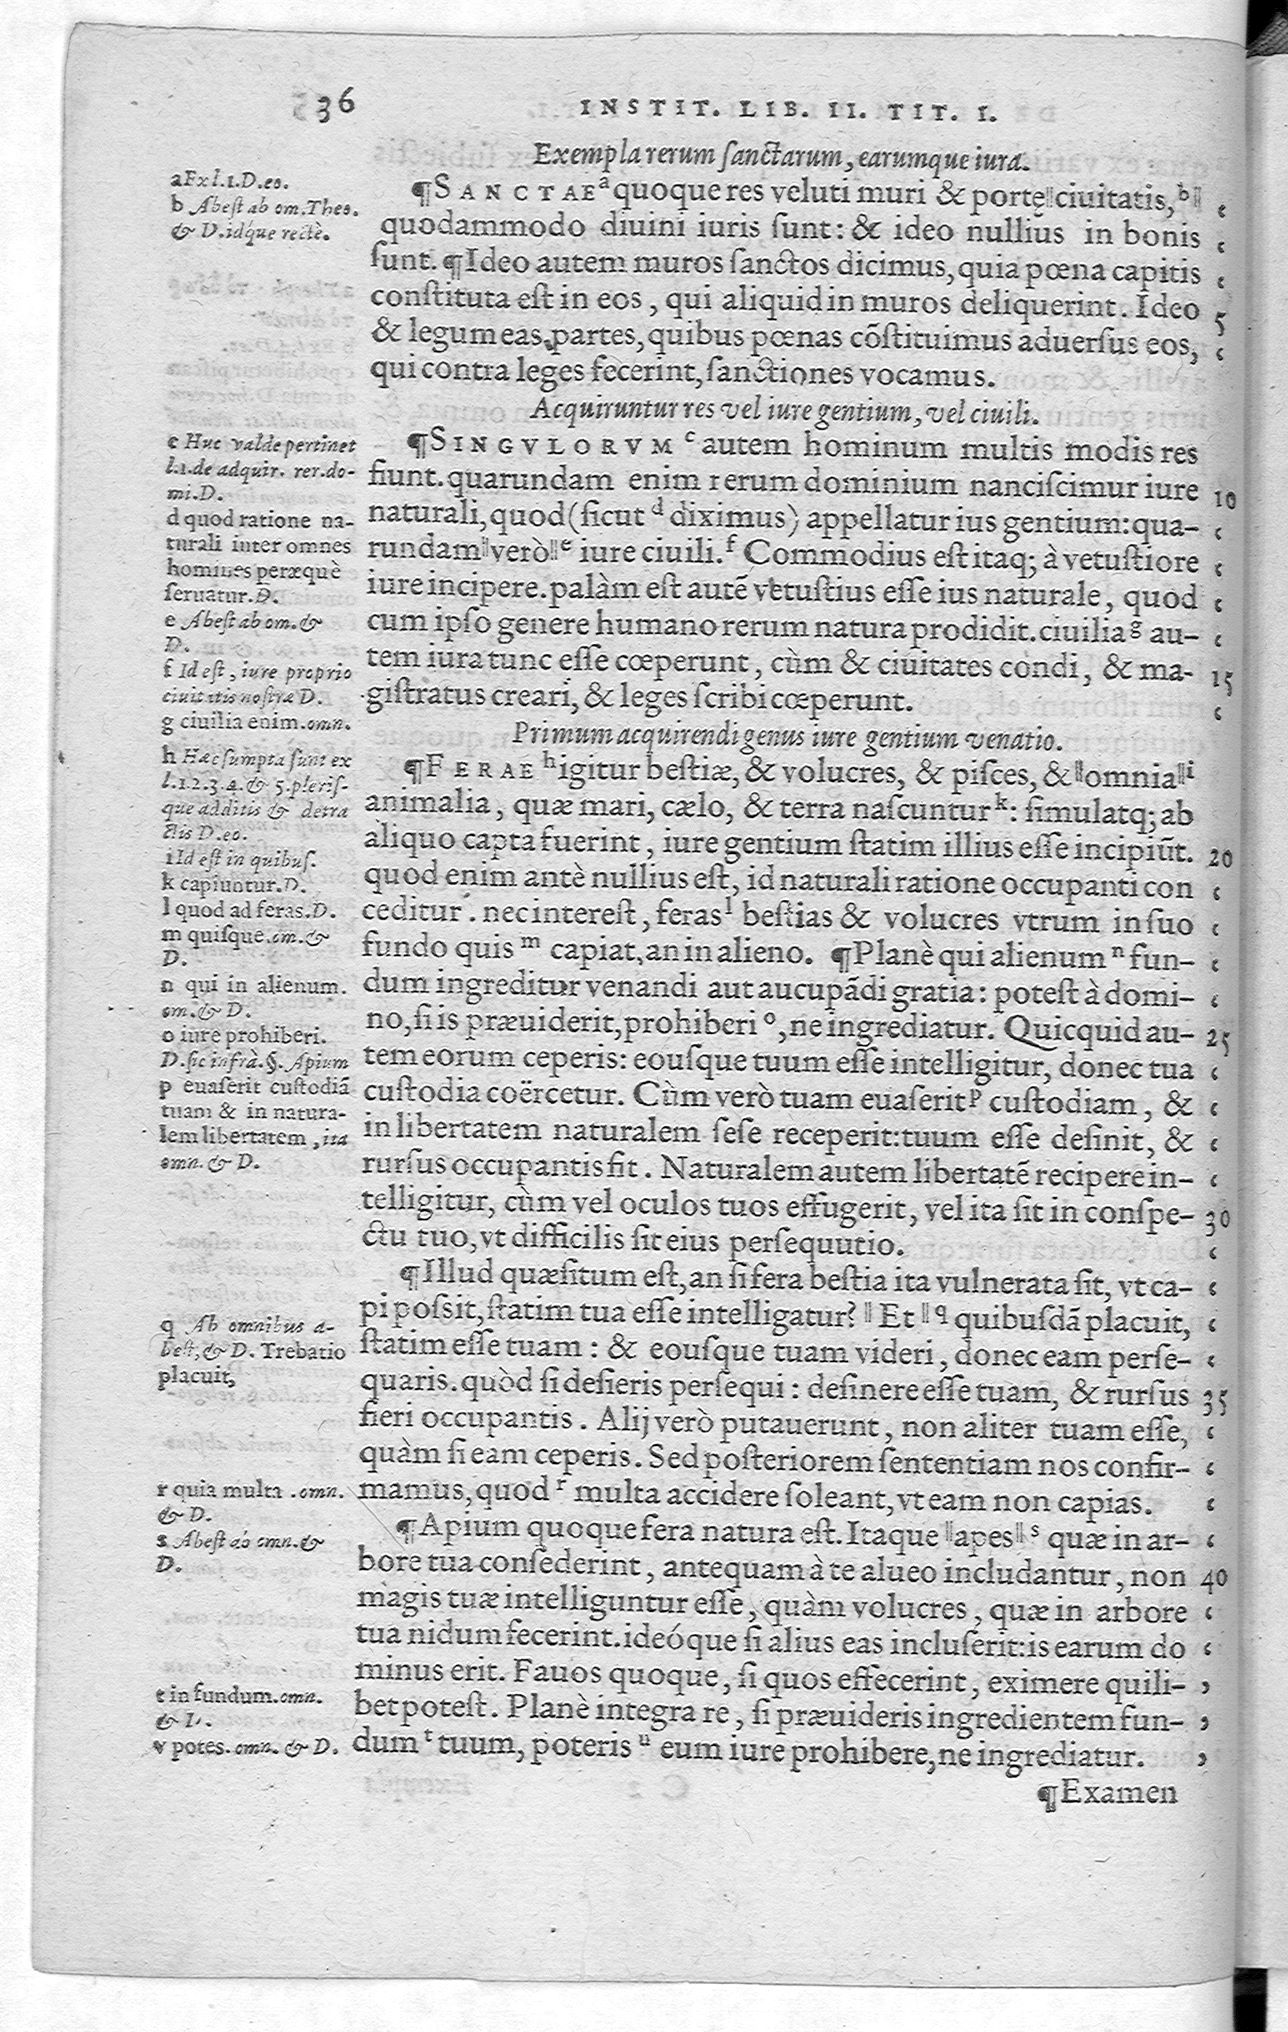 36
INSTIT. LIB. II. TIT. I.
Exempla rerum ſanctarum, earumque iura.
¶SANCTAE a quoque res veluti muri & portę ‖ciuitatis, b‖
quodammodo diuini iuris ſunt: & ideo nullius in bonis
ſunt. ¶Ideo autem muros ſanctos dicimus, quia pœna capitis
conſtituta eſt in eos, qui aliquid in muros deliquerint. Ideo 5
& legum eas partes, quibus pœnas cōſtituimus aduerſus eos,
qui contra leges fecerint, ſanctiones vocamus.
Acquiruntur res vel iure gentium, vel ciuili.
¶SINGVLORVM c autem hominum multis modis res
fiunt. quarundam enim rerum dominium nanciſcimur iure 10
naturali, quod (ſicut d diximus) appellatur ius gentium: qua-
rundam ‖verò‖ e iure ciuili. f Commodius eſt itaq; à vetuſtiore
iure incipere. palàm eſt autē vetuſtius eſſe ius naturale, quod
cum ipſo genere humano rerum natura prodidit. ciuilia g au-
tem iura tunc eſſe cœperunt, cùm & ciuitates condi, & ma- 15
giſtratus creari, & leges ſcribi cœperunt.
Primum acquirendi genus iure gentium venatio.
¶FERAE h igitur beſtiæ, & volucres, & piſces, & ‖omnia‖ i
animalia, quæ mari, cælo, & terra naſcuntur k: ſimulatq; ab
aliquo capta fuerint, iure gentium ſtatim illius eſſe incipiūt. 20
quod enim antè nullius eſt, id naturali ratione occupanti con
ceditur. nec intereſt, feras l beſtias & volucres vtrum in ſuo
fundo quis m capiat, an in alieno. ¶Planè qui alienum n fun-
dum ingreditur venandi aut aucupādi gratia: poteſt à domi-
no, ſi is præuiderit, prohiberi o, ne ingrediatur. Quicquid au- 25
tem eorum ceperis: eouſque tuum eſſe intelligitur, donec tua
cuſtodia coërcetur. Cùm verò tuam euaſerit p cuſtodiam, &
in libertatem naturalem ſeſe receperit: tuum eſſe deſinit, &
rurſus occupantis fit. Naturalem autem libertatē recipere in-
telligitur, cùm vel oculos tuos effugerit, vel ita ſit in conſpe- 30
ctu tuo, vt difficilis ſit eius perſequutio.
¶Illud quæſitum eſt, an ſi fera beſtia ita vulnerata ſit, vt ca-
pi poſſit, ſtatim tua eſſe intelligatur? ‖Et‖ q quibuſdā placuit,
ſtatim eſſe tuam: & eouſque tuam videri, donec eam perſe-
quaris. quòd ſi deſieris perſequi: deſinere eſſe tuam, & rurſus 35
fieri occupantis. Alij verò putauerunt, non aliter tuam eſſe,
quàm ſi eam ceperis. Sed poſteriorem ſententiam nos confir-
mamus, quod r multa accidere ſoleant, vt eam non capias.
¶Apium quoque fera natura eſt. Itaque ‖apes‖ s quæ in ar-
bore tua conſederint, antequam à te alueo includantur, non 40
magis tuæ intelliguntur eſſe, quàm volucres, quæ in arbore
tua nidum fecerint. ideóque ſi alius eas incluſerit: is earum do
minus erit. Fauos quoque, ſi quos effecerint, eximere quili-
bet poteſt. Planè integra re, ſi præuideris ingredientem fun-
dum t tuum, poteris u eum iure prohibere, ne ingrediatur.
¶Examen
a Ex l.1.D.eo.
b Abeſt ab om. Theo.
& D. idq́ue rectè.
c Huc valde pertinet
l.1.de adquir. rer.do-
mi.D.
d quod ratione na-
turali inter omnes
homines peræquè
ſeruatur.D.
e Abeſt ab om. &
D.
f Id eſt, iure proprio
ciuitatis noſtræ D.
g ciuilia enim.omn.
h Hæc ſumpta ſunt ex
l.1.2.3.4.& 5.pleriſ-
que additis & detra
ctis D.eo.
i Id eſt in quibuſ.
k capiuntur.D.
l quod ad feras.D.
m quiſque.om.&
D.
n qui in alienum.
om.& D.
o iure prohiberi.
D.ſic infrà.§. Apium
p euaſerit cuſtodiā
tuam & in natura-
lem libertatem, ita
omn.& D.
q Ab omnibus a-
beſt, & D. Trebatio
placuit,
r quia multa .omn.
& D.
s Abeſt ab omn.&
D.
t in fundum.omn.
& D.
v potes.omn.& D.